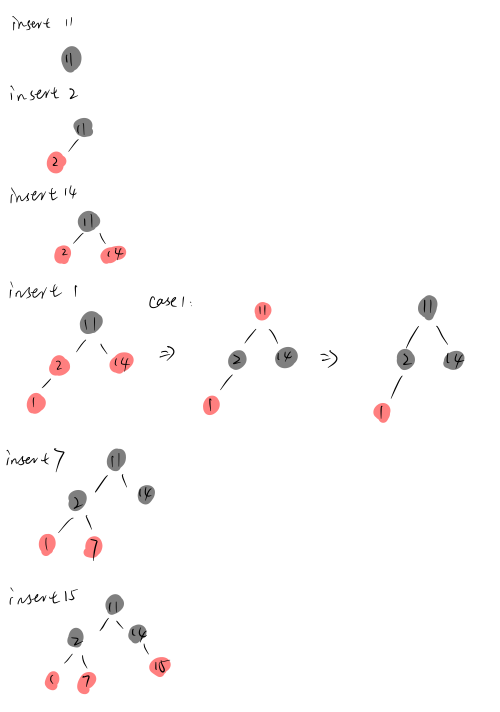 insert 11
11
insert 2
11
2
insert 14
11
2 14
insert 1
case1:
11 ⇒ 11 ⇒ 11
2 14 2 14 2 14
1 1 1
insert 7
11
2 14
1 7
insert 15
11
2 14
1 7 15